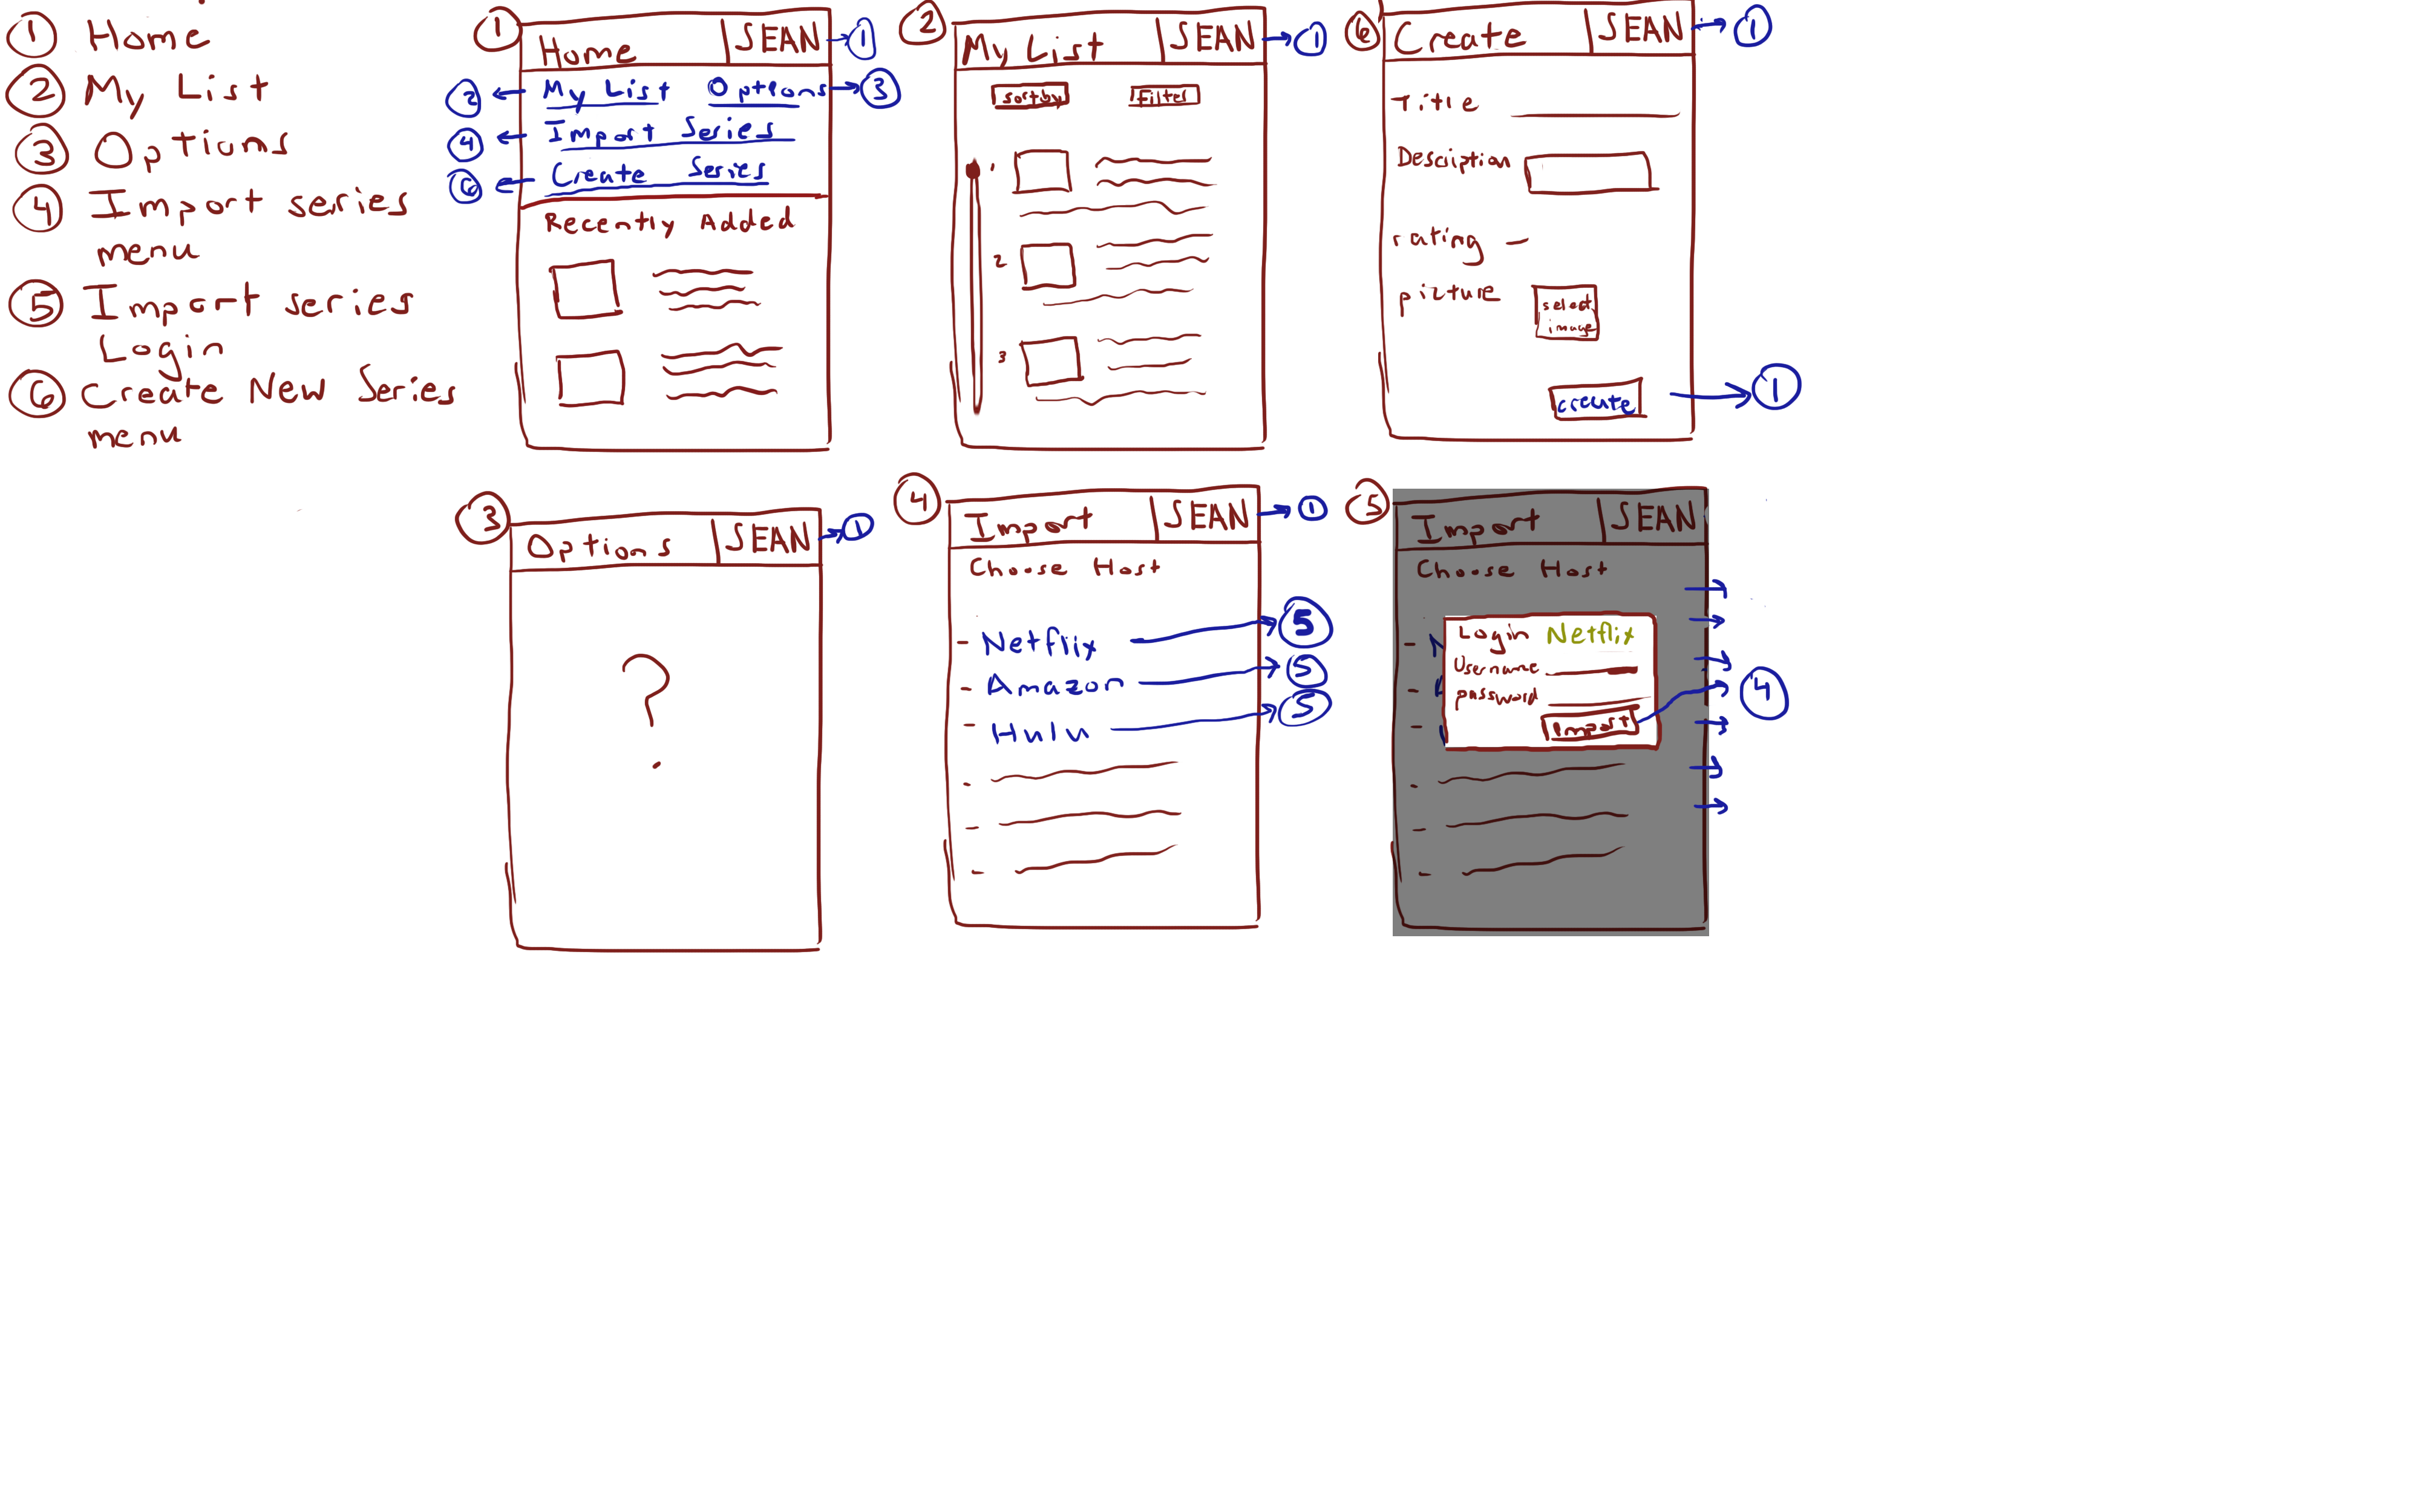 1 Home
2 My List
3 Options
4 Import series
menu
5 Import series
Login
6 Create New Series
menu
1
Home SEAN 1
2 My List Options 3
4 Import Series
6 Create Series
Recently Added
2
My List SEAN 1
sort by Filter
1
2
3
6
Create SEAN 1
Title
Desciption
rating
picture select
image
create 1
3
Options SEAN 1
?
4
Import SEAN 1
Choose Host
- Netflix 5
- Amazon 5
- Hulu 5
-
-
-
5
Import SEAN
Choose Host
Login Netflix
Username
password
Import 4